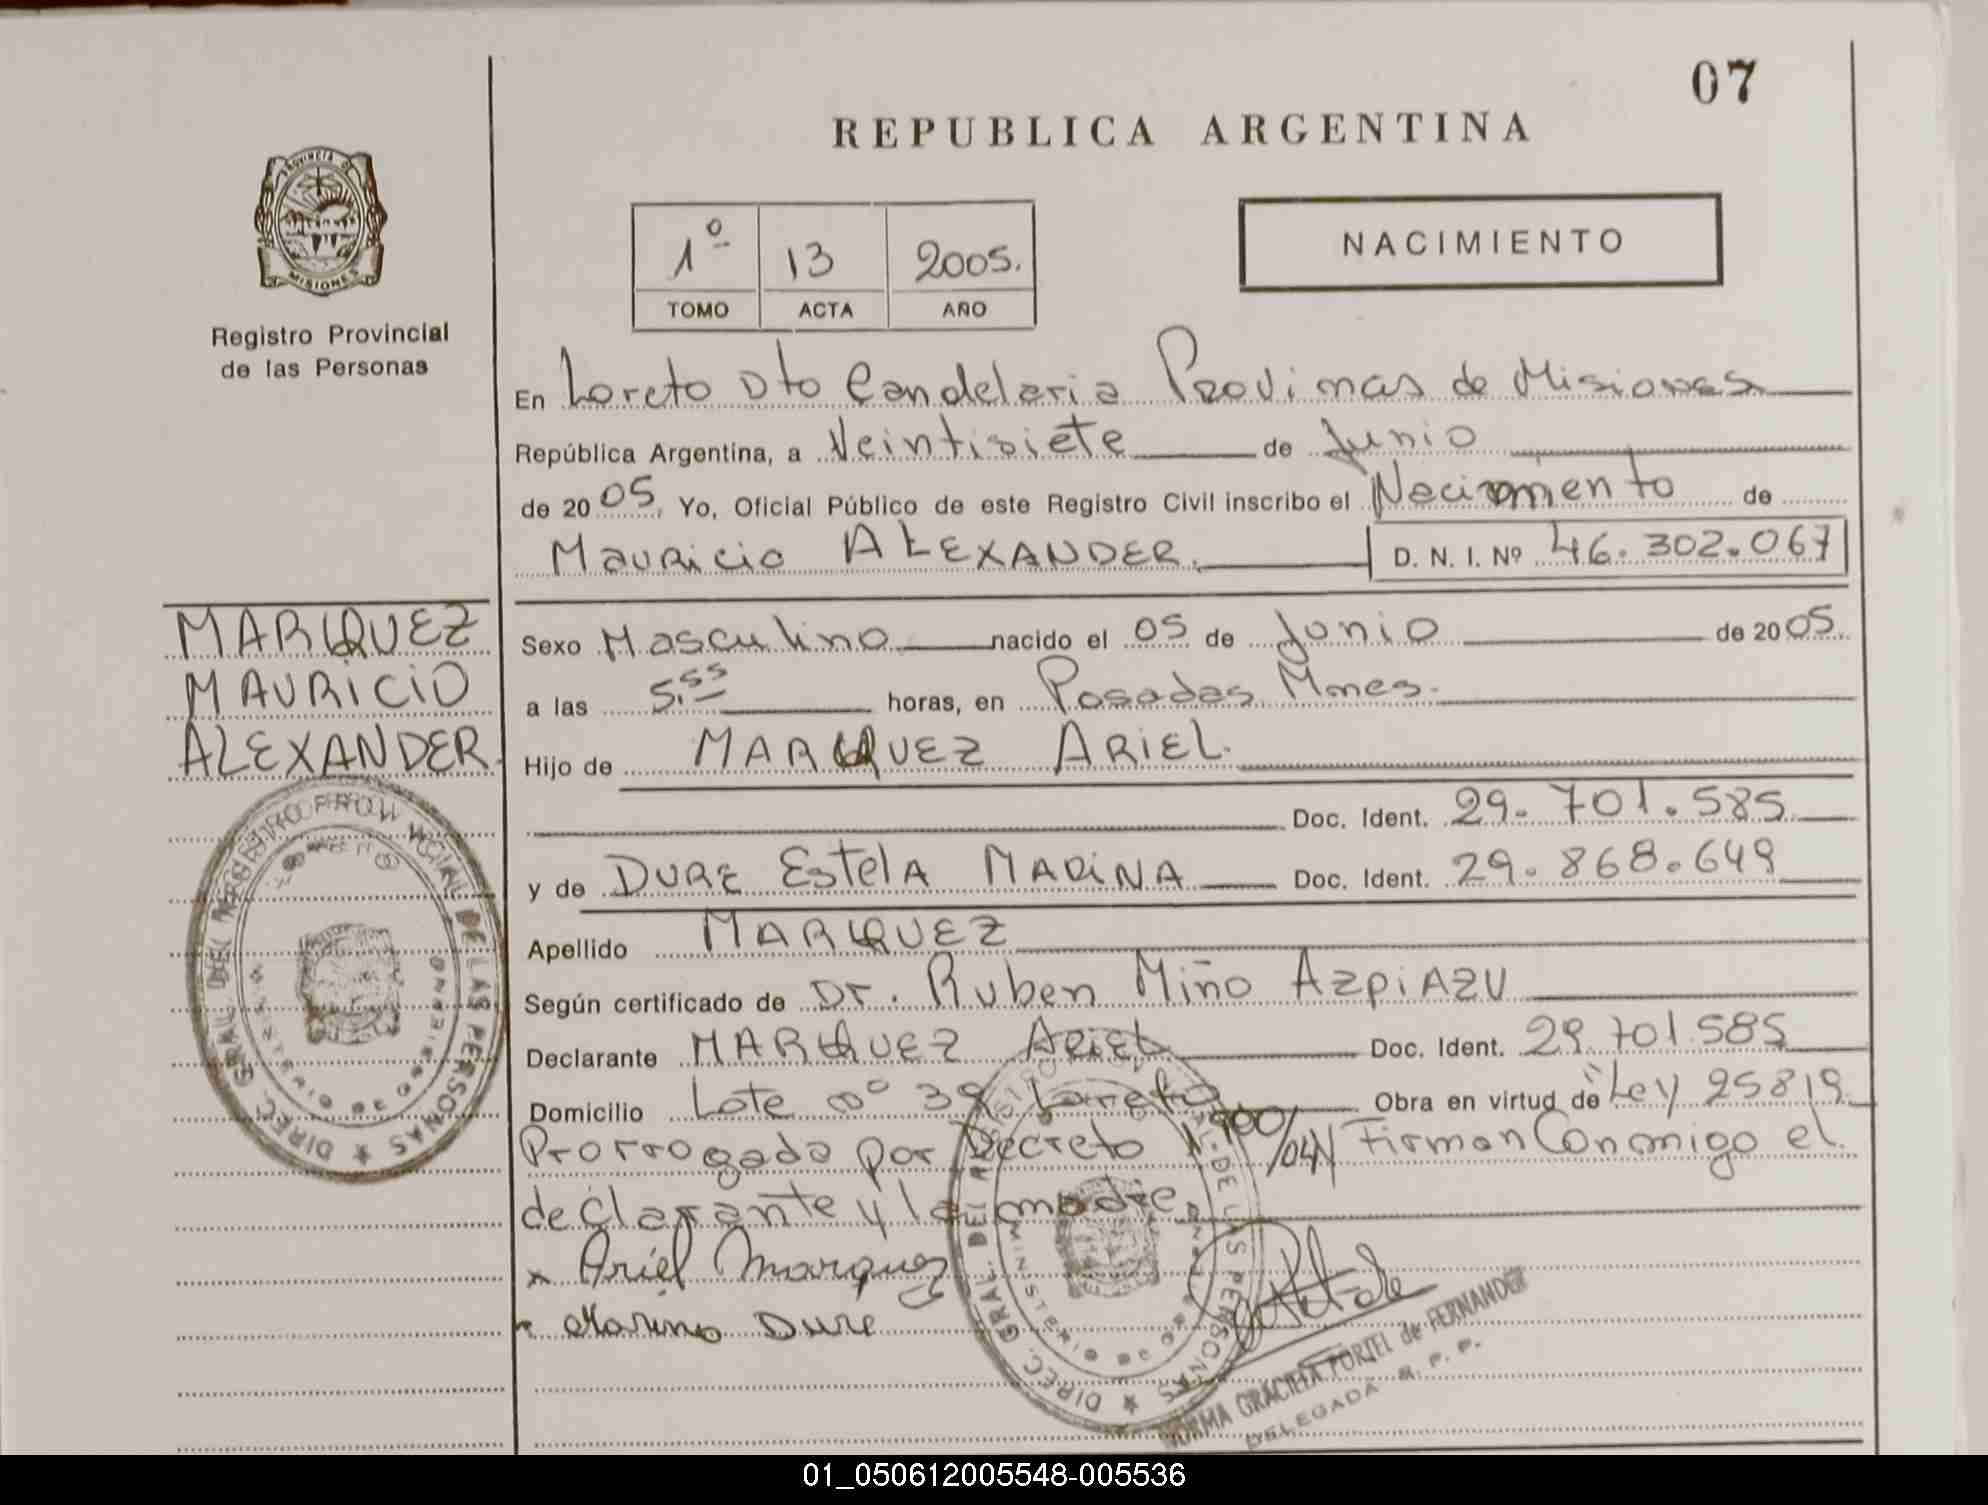 07
REPUBLICA ARGENTINA
PROVINCIA DE
MISIONES
Registro Provincial
de las Personas
1º 13 2005.
TOMO ACTA AÑO
NACIMIENTO
En Loreto Dto Candelaria Provimas de Misiones
República Argentina, a Veintisiete de Junio
de 2005, Yo, Oficial Público de este Registro Civil inscribo el Nacimiento de
Mauricio ALEXANDER. D. N. I. Nº 46.302.067
MARQUEZ
MAURICIO
ALEXANDER.
Sexo Masculino nacido el 05 de Junio de 2005.
a las 5.55 horas, en Posadas Mnes.
Hijo de MARQUEZ ARIEL.
Doc. Ident. 29.701.585
y de DURE EstelA MARINA Doc. Ident. 29.868.649
Apellido MARQUEZ
Según certificado de Dr. Ruben Miño AzpiAZU
Declarante MARQUEZ Ariel Doc. Ident. 29.701.585
Domicilio Lote nº 39 Loreto Obra en virtud de Ley 25819.
Prorrogada por Decreto 1.900/04 Firman Conmigo el
declarante y la madre.
x Ariel Marquez
Marina Dure
DIREC. GRAL. DEL REGISTRO PROVINCIAL DE LAS PERSONAS
MINISTERIO DE GOBIERNO
DIREC. GRAL. DEL REGISTRO PROVINCIAL DE LAS PERSONAS
MINISTERIO DE GOBIERNO
NORMA GRACIELA PORIEL de FERNANDEZ
DELEGADA R. P. P.
01_050612005548-005536